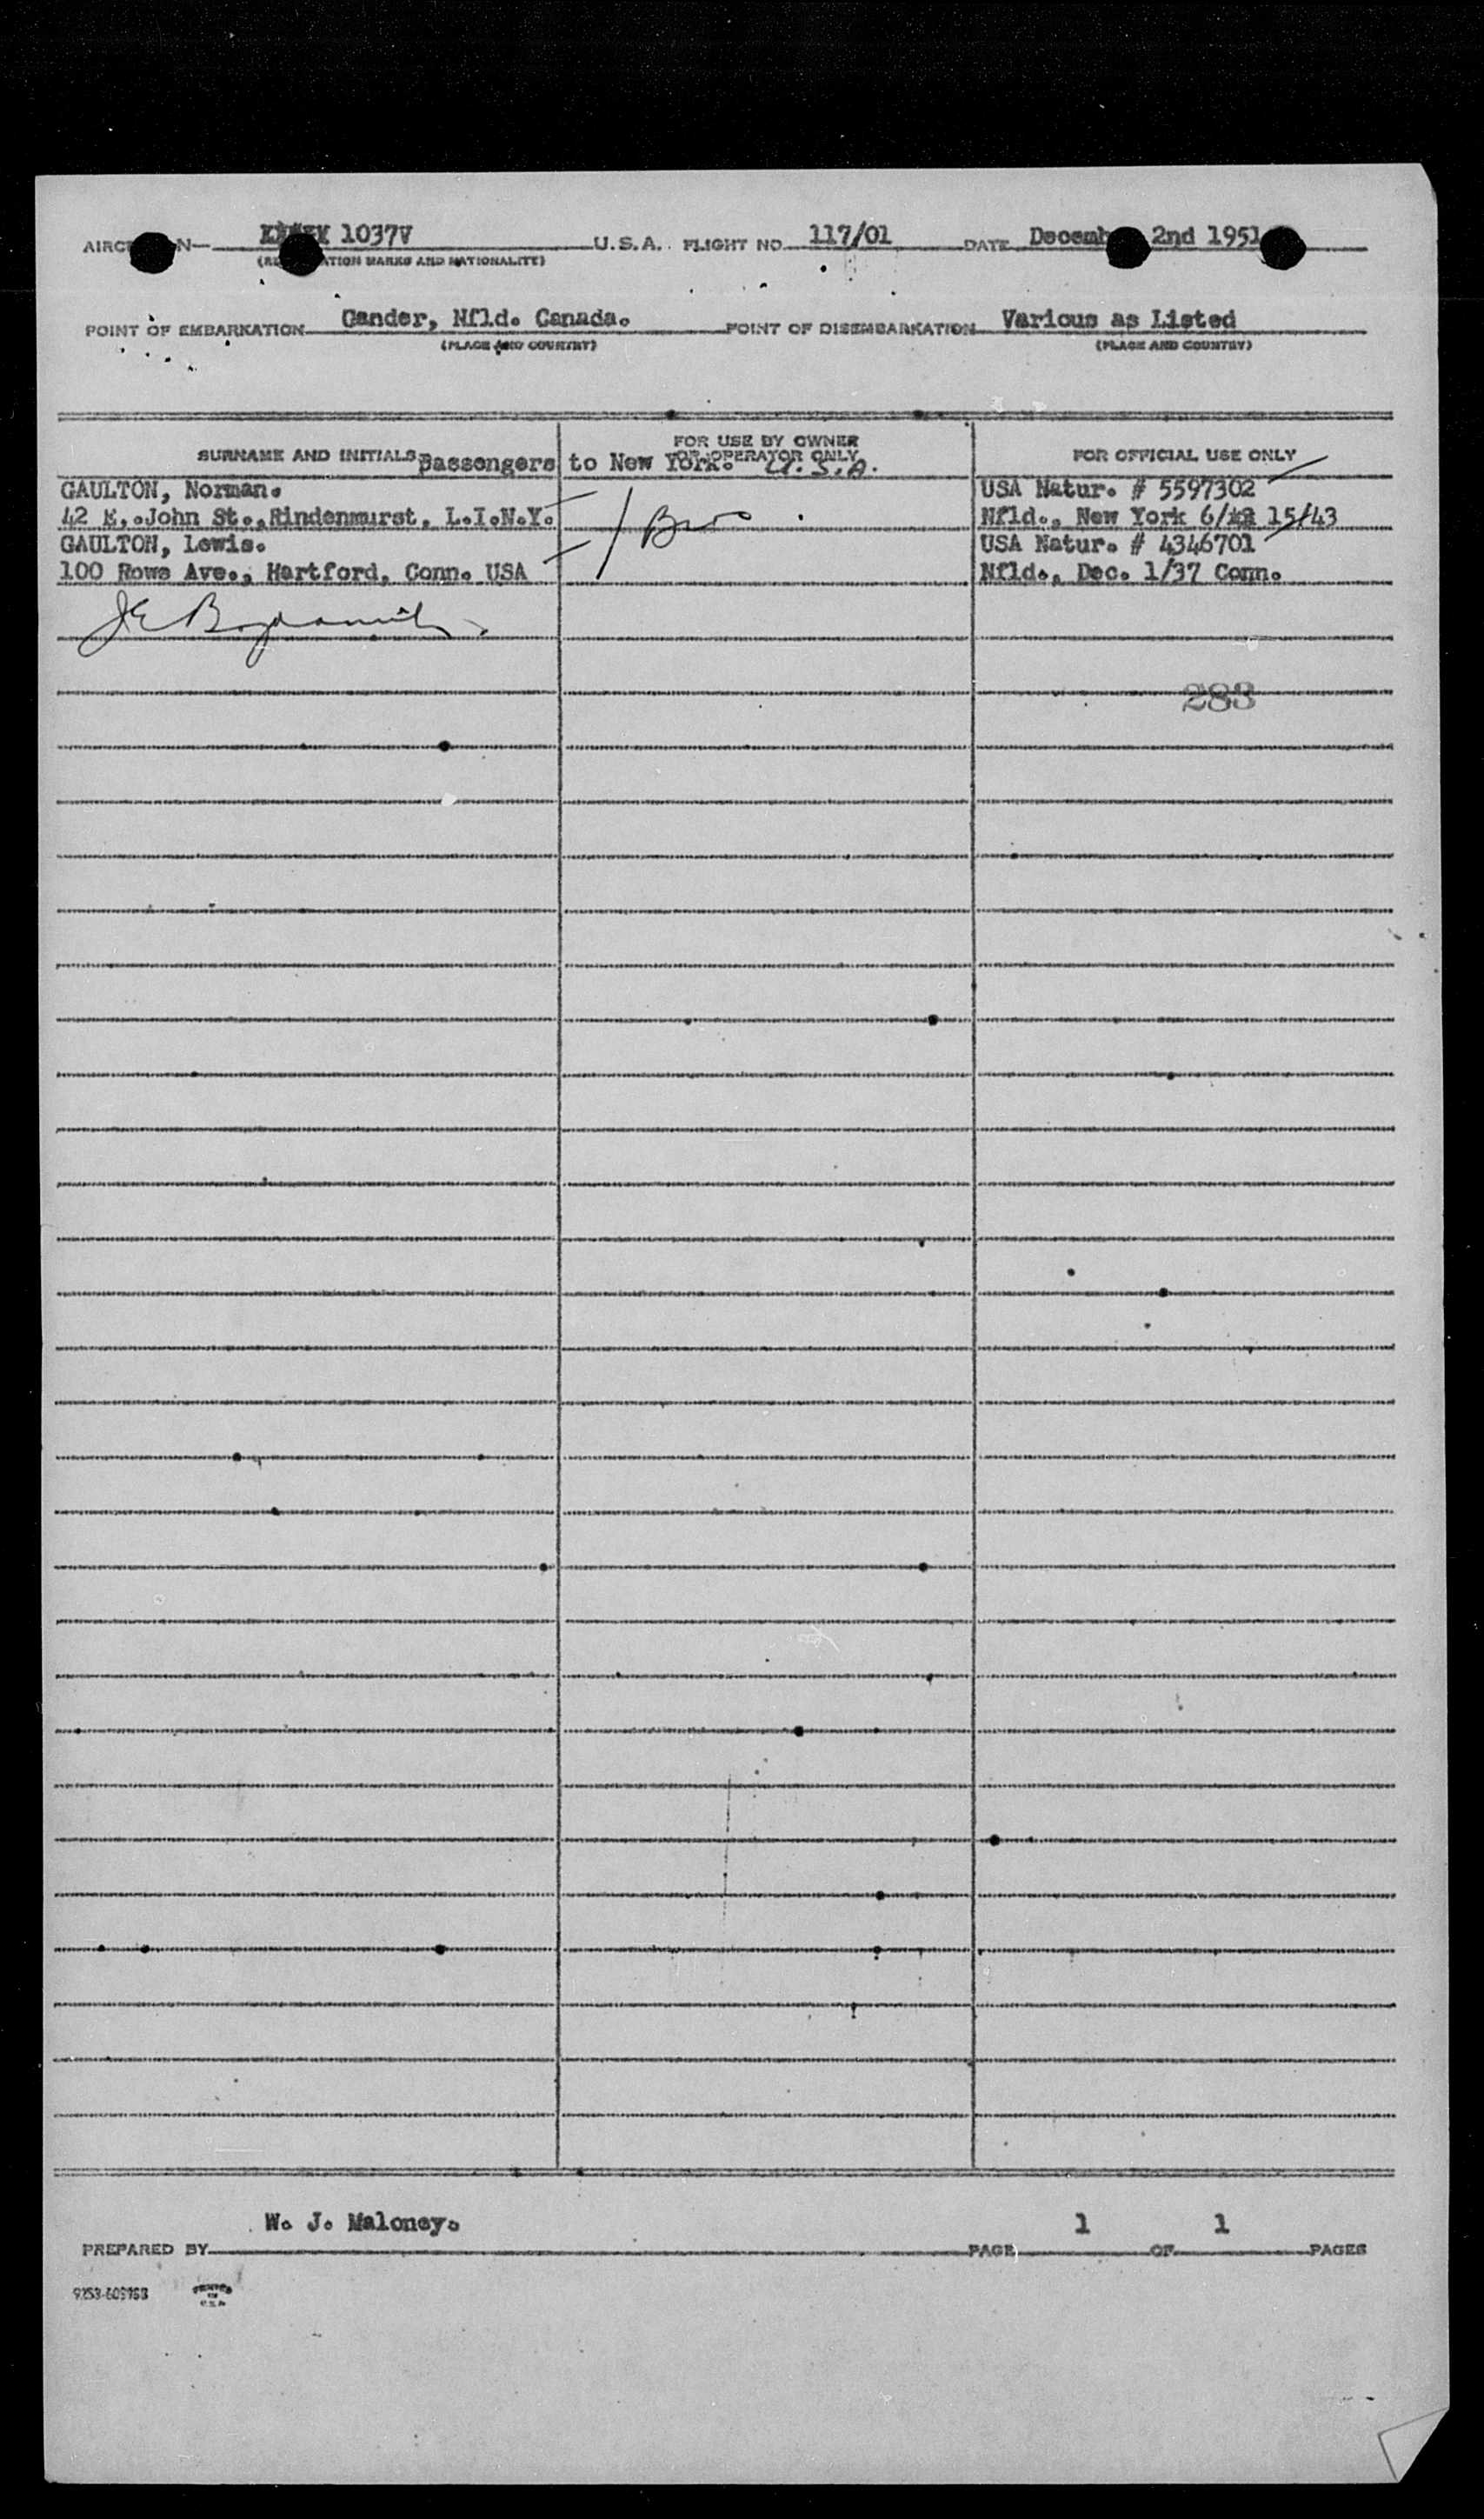 AIRC N- 1037V U.S.A. FLIGHT NO. 117/01 DATE Decemb 2nd 1951
ATION MARKS AND NATIONALITY)
POINT OF EMBARKATION Gander, Nfld. Canada. POINT OF DISEMBARKATION Various as Listed
(PLACE AND COUNTRY) (PLACE AND COUNTRY)
SURNAME AND INITIALS FOR USE BY OWNER OR OPERATOR ONLY FOR OFFICIAL USE ONLY
Passengers to New York. U.S.A.
GAULTON, Norman. USA Natur. # 5597302
42 E,.John St.,Rindenmurst, L.I.N.Y. Nfld., New York 6/ 15/43
GAULTON, Lewis. USA Natur. # 4346701
100 Rowe Ave., Hartford, Conn. USA Nfld., Dec. 1/37 Conn.
283
W. J. Maloney.
PREPARED BY PAGE 1 OF 1 PAGES
PRINTED
IN
U.S.A